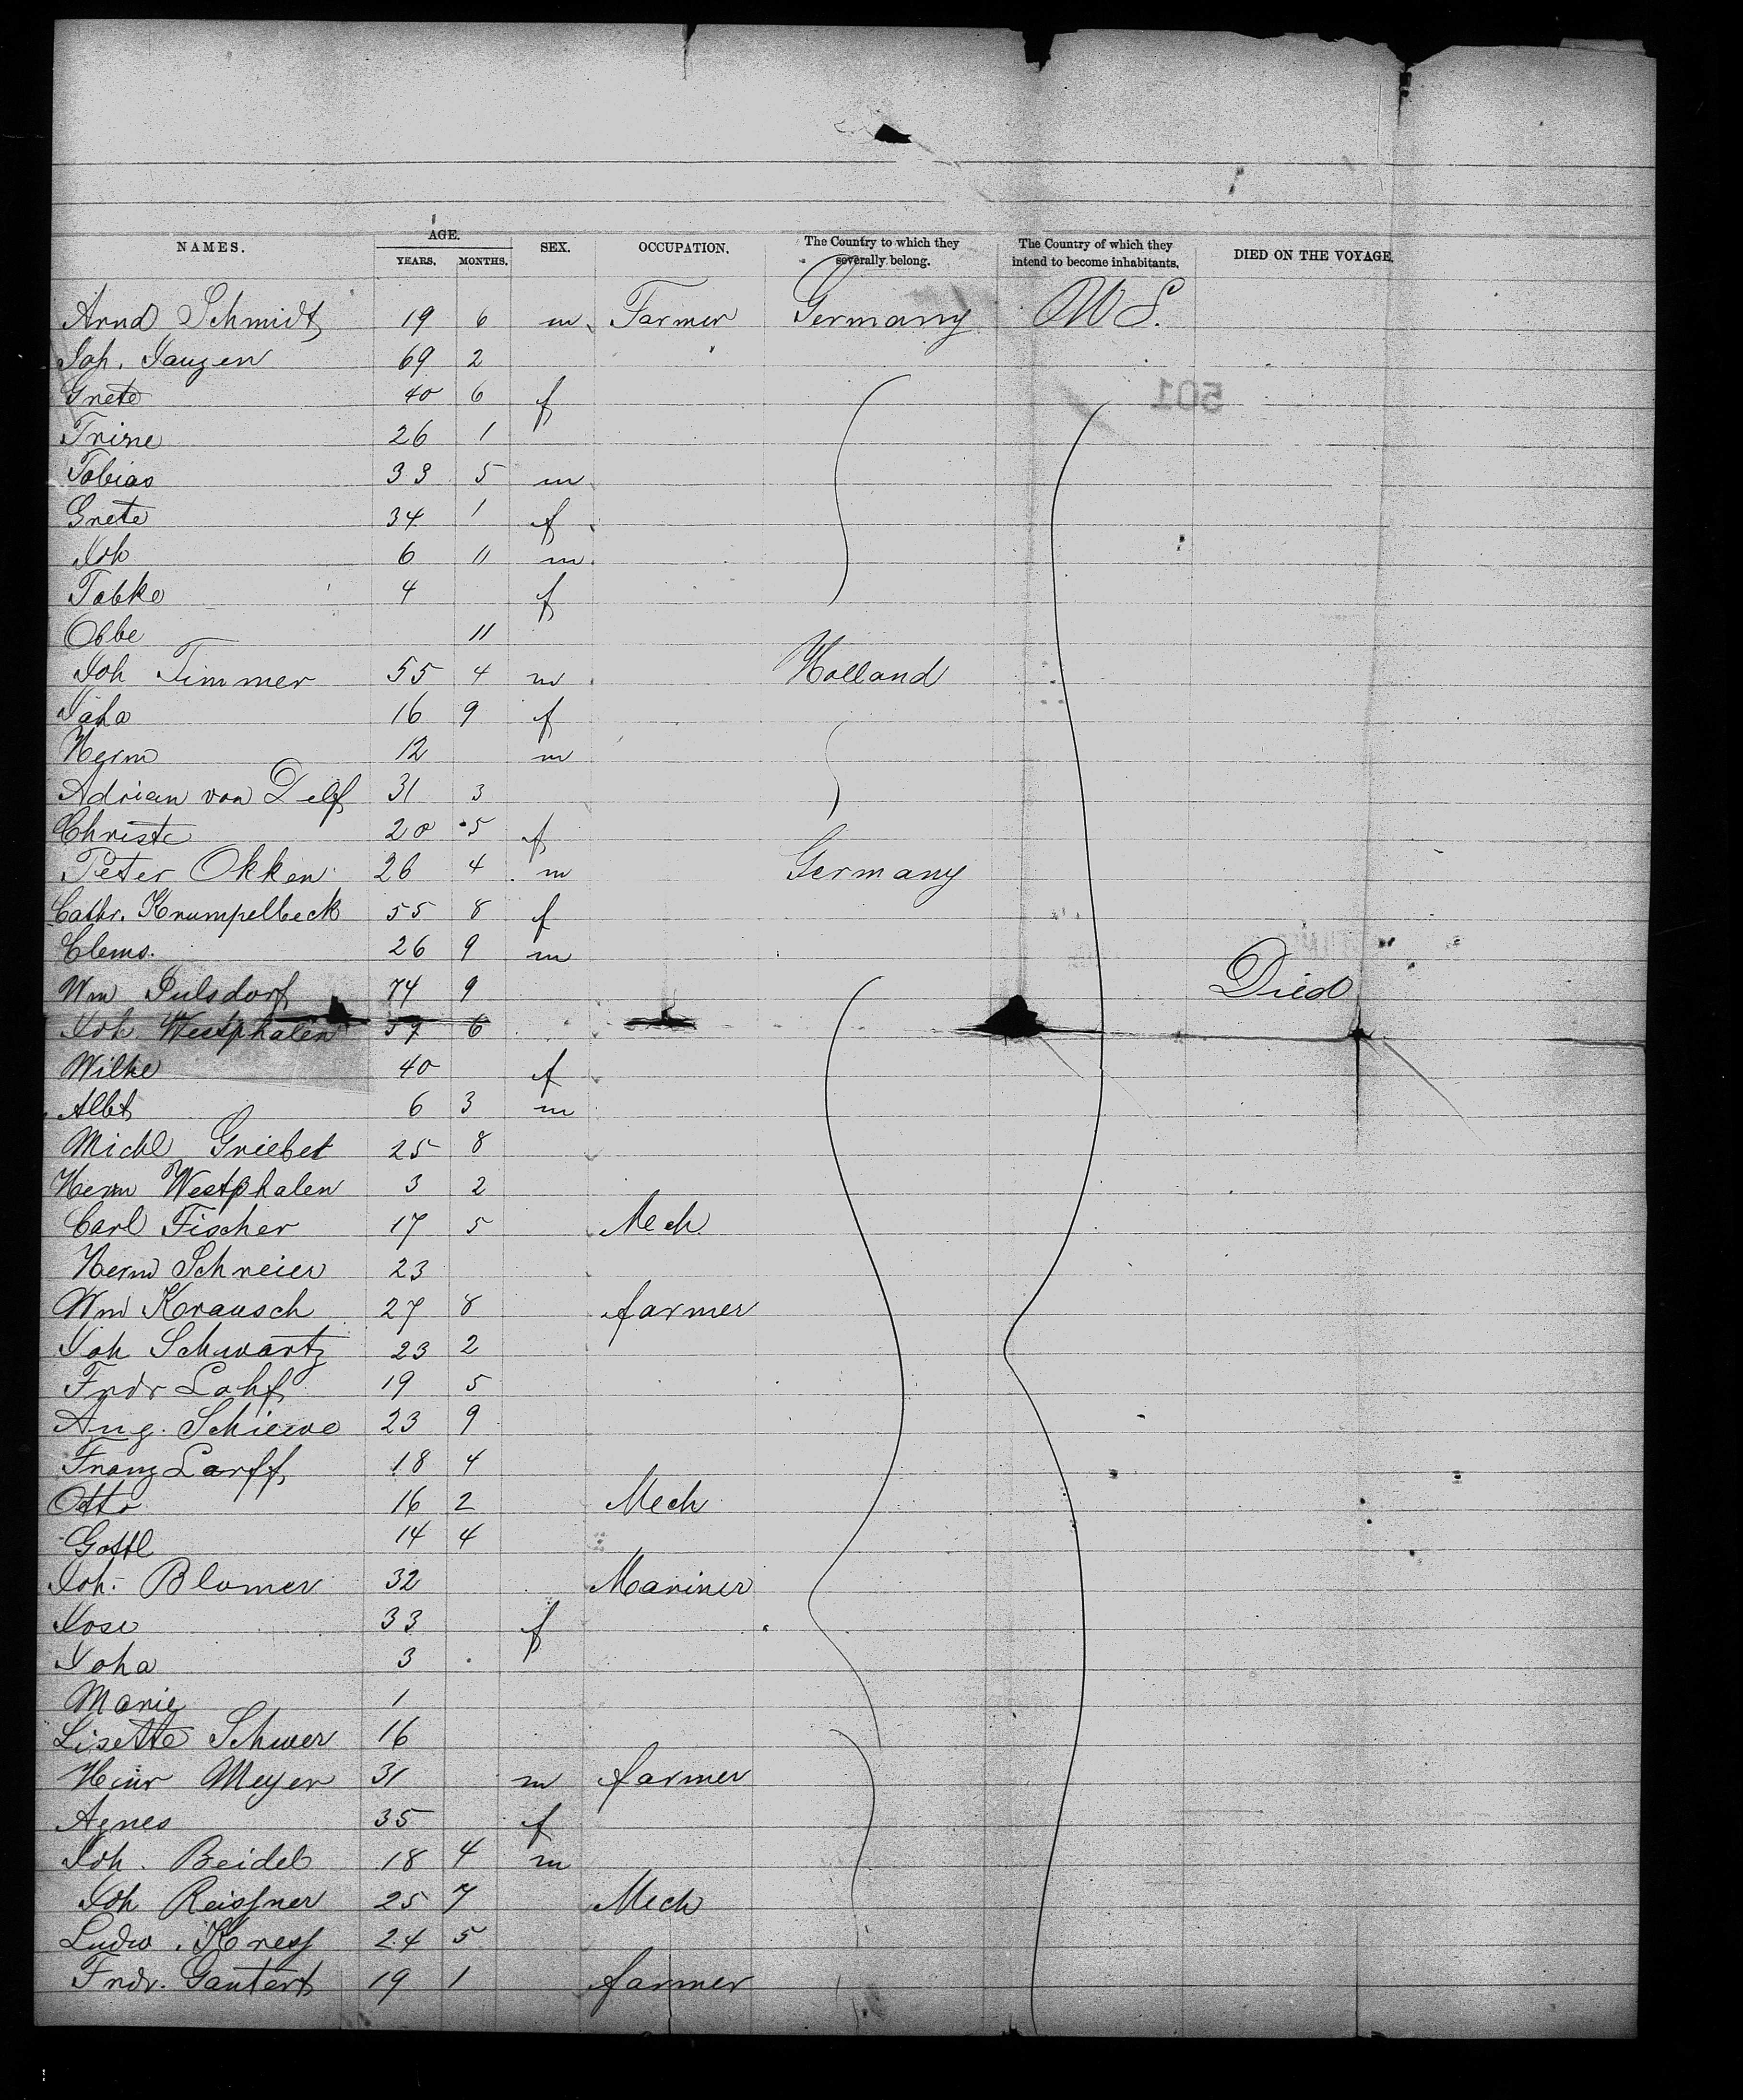 NAMES. AGE. YEARS. MONTHS. SEX. OCCUPATION. The Country to which they severally belong. The Country of which they intend to become inhabitants. DIED ON THE VOYAGE.
Arnd Schmidt 19 6 m Farmer Germany U S.
Joh. Janzen 69 2
Grete 40 6 f
501
Trine 26 1
Tobias 33 5 m
Grete 34 1 f
Joh 6 11 m
Tobke 4 f
Obbe 11
Joh Timmer 55 4 m Holland
Jaha 16 9 f
Herm 12 m
Adrian von Delf 31 3
Christe 20 5 f
Peter Okken 26 4 m Germany
Cathr. Krumpelbeck 55 8 f
Clems. 26 9 m
Wm Pulsdorf 74 9 Died
Joh. Westphalen 57 6
Wilke 40 f
Albt 6 3 m
Michl Griebet 25 8
Herm Westphalen 3 2
Carl Fischer 17 5 Mech.
Herm Schreier 23
Wm Krausch 27 8 farmer
Joh Schwartz 23 2
Frdr Lohf 19 5
Aug. Schiewe 23 9
Franz Larff 18 4
Otto 16 2 Mech
Gottl 14 4
Joh. Blomer 32 Mariner
Jose 33 f
Joha 3
Marie 1
Lisette Schwer 16
Heinr Meyer 31 m farmer
Agnes 35 f
Joh. Beidel 18 4 m
Joh Reissner 25 7 Mech
Ludw. Kress 24 5
Frdr. Gantert 19 1 farmer